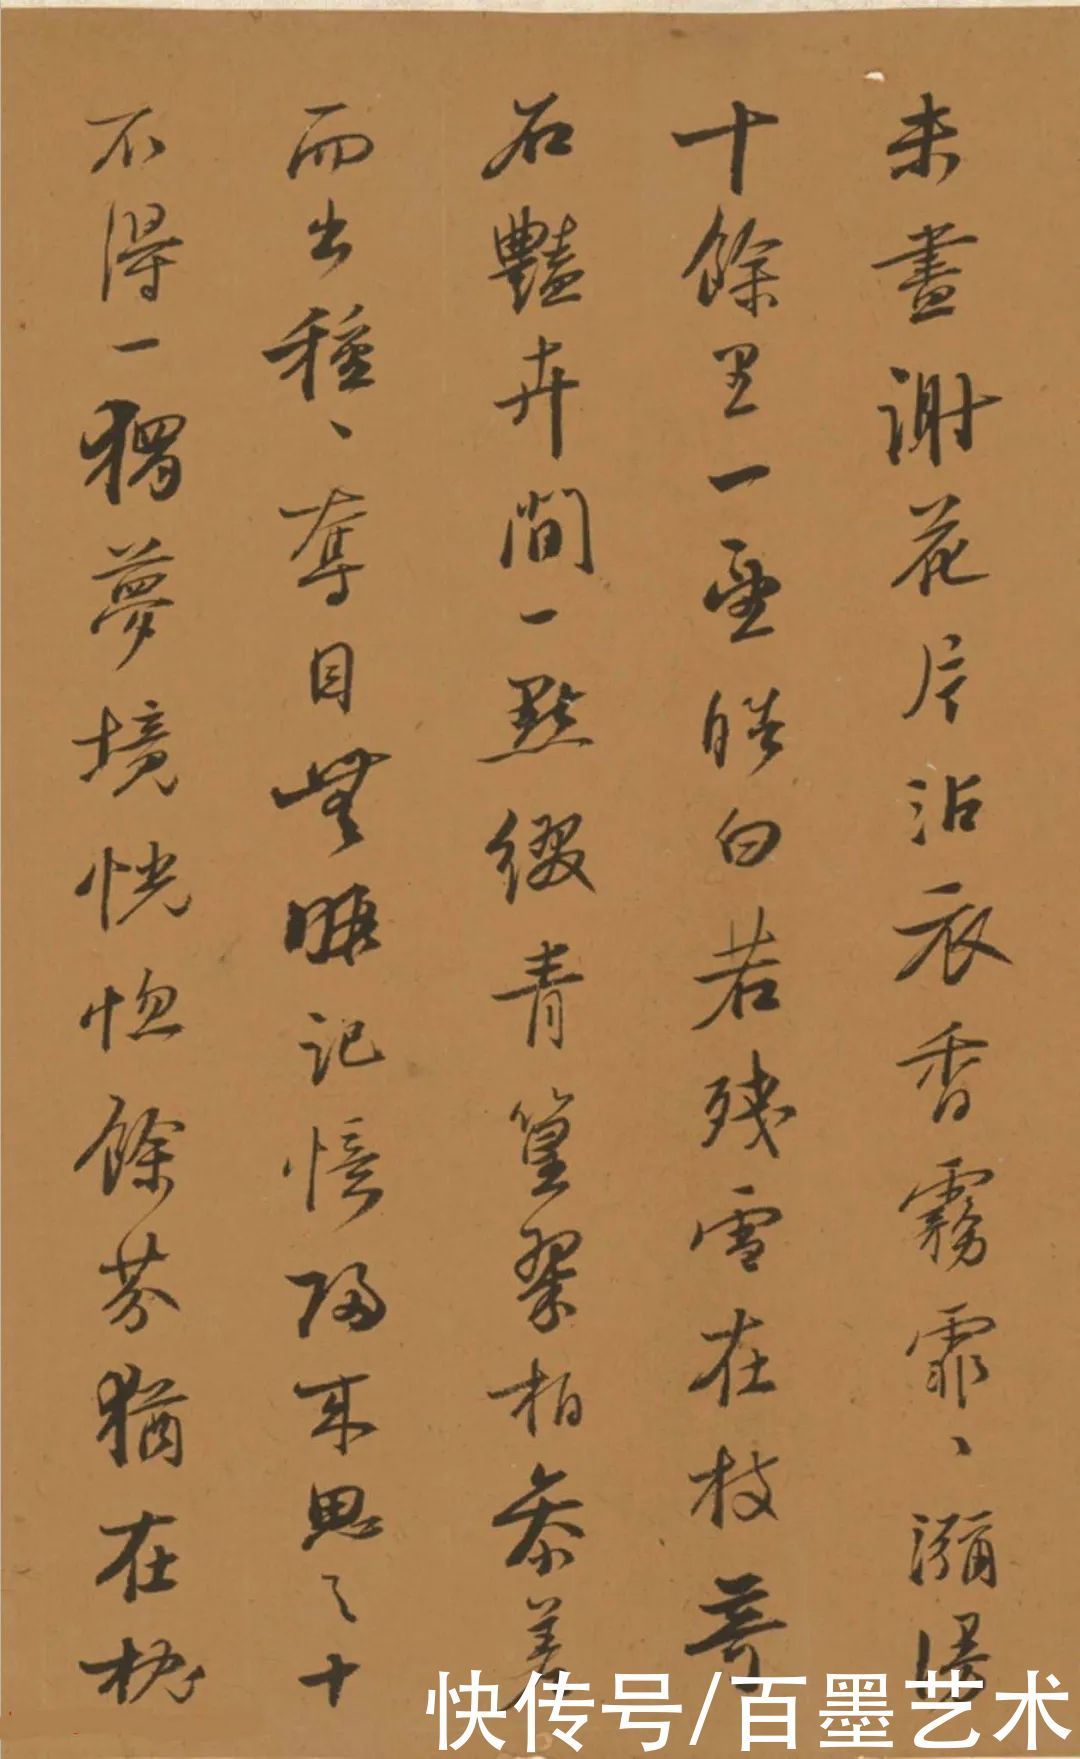 未盡謝花片沾衣香霧霏、瀰漫
十餘里一望皓白若殘雪在枝奇
石豔卉間一點綴青篁翠柏參差
而出種、奪目無暇記憶歸來思之十
不得一獨夢境恍惚餘芬猶在枕
快传号/百墨艺术